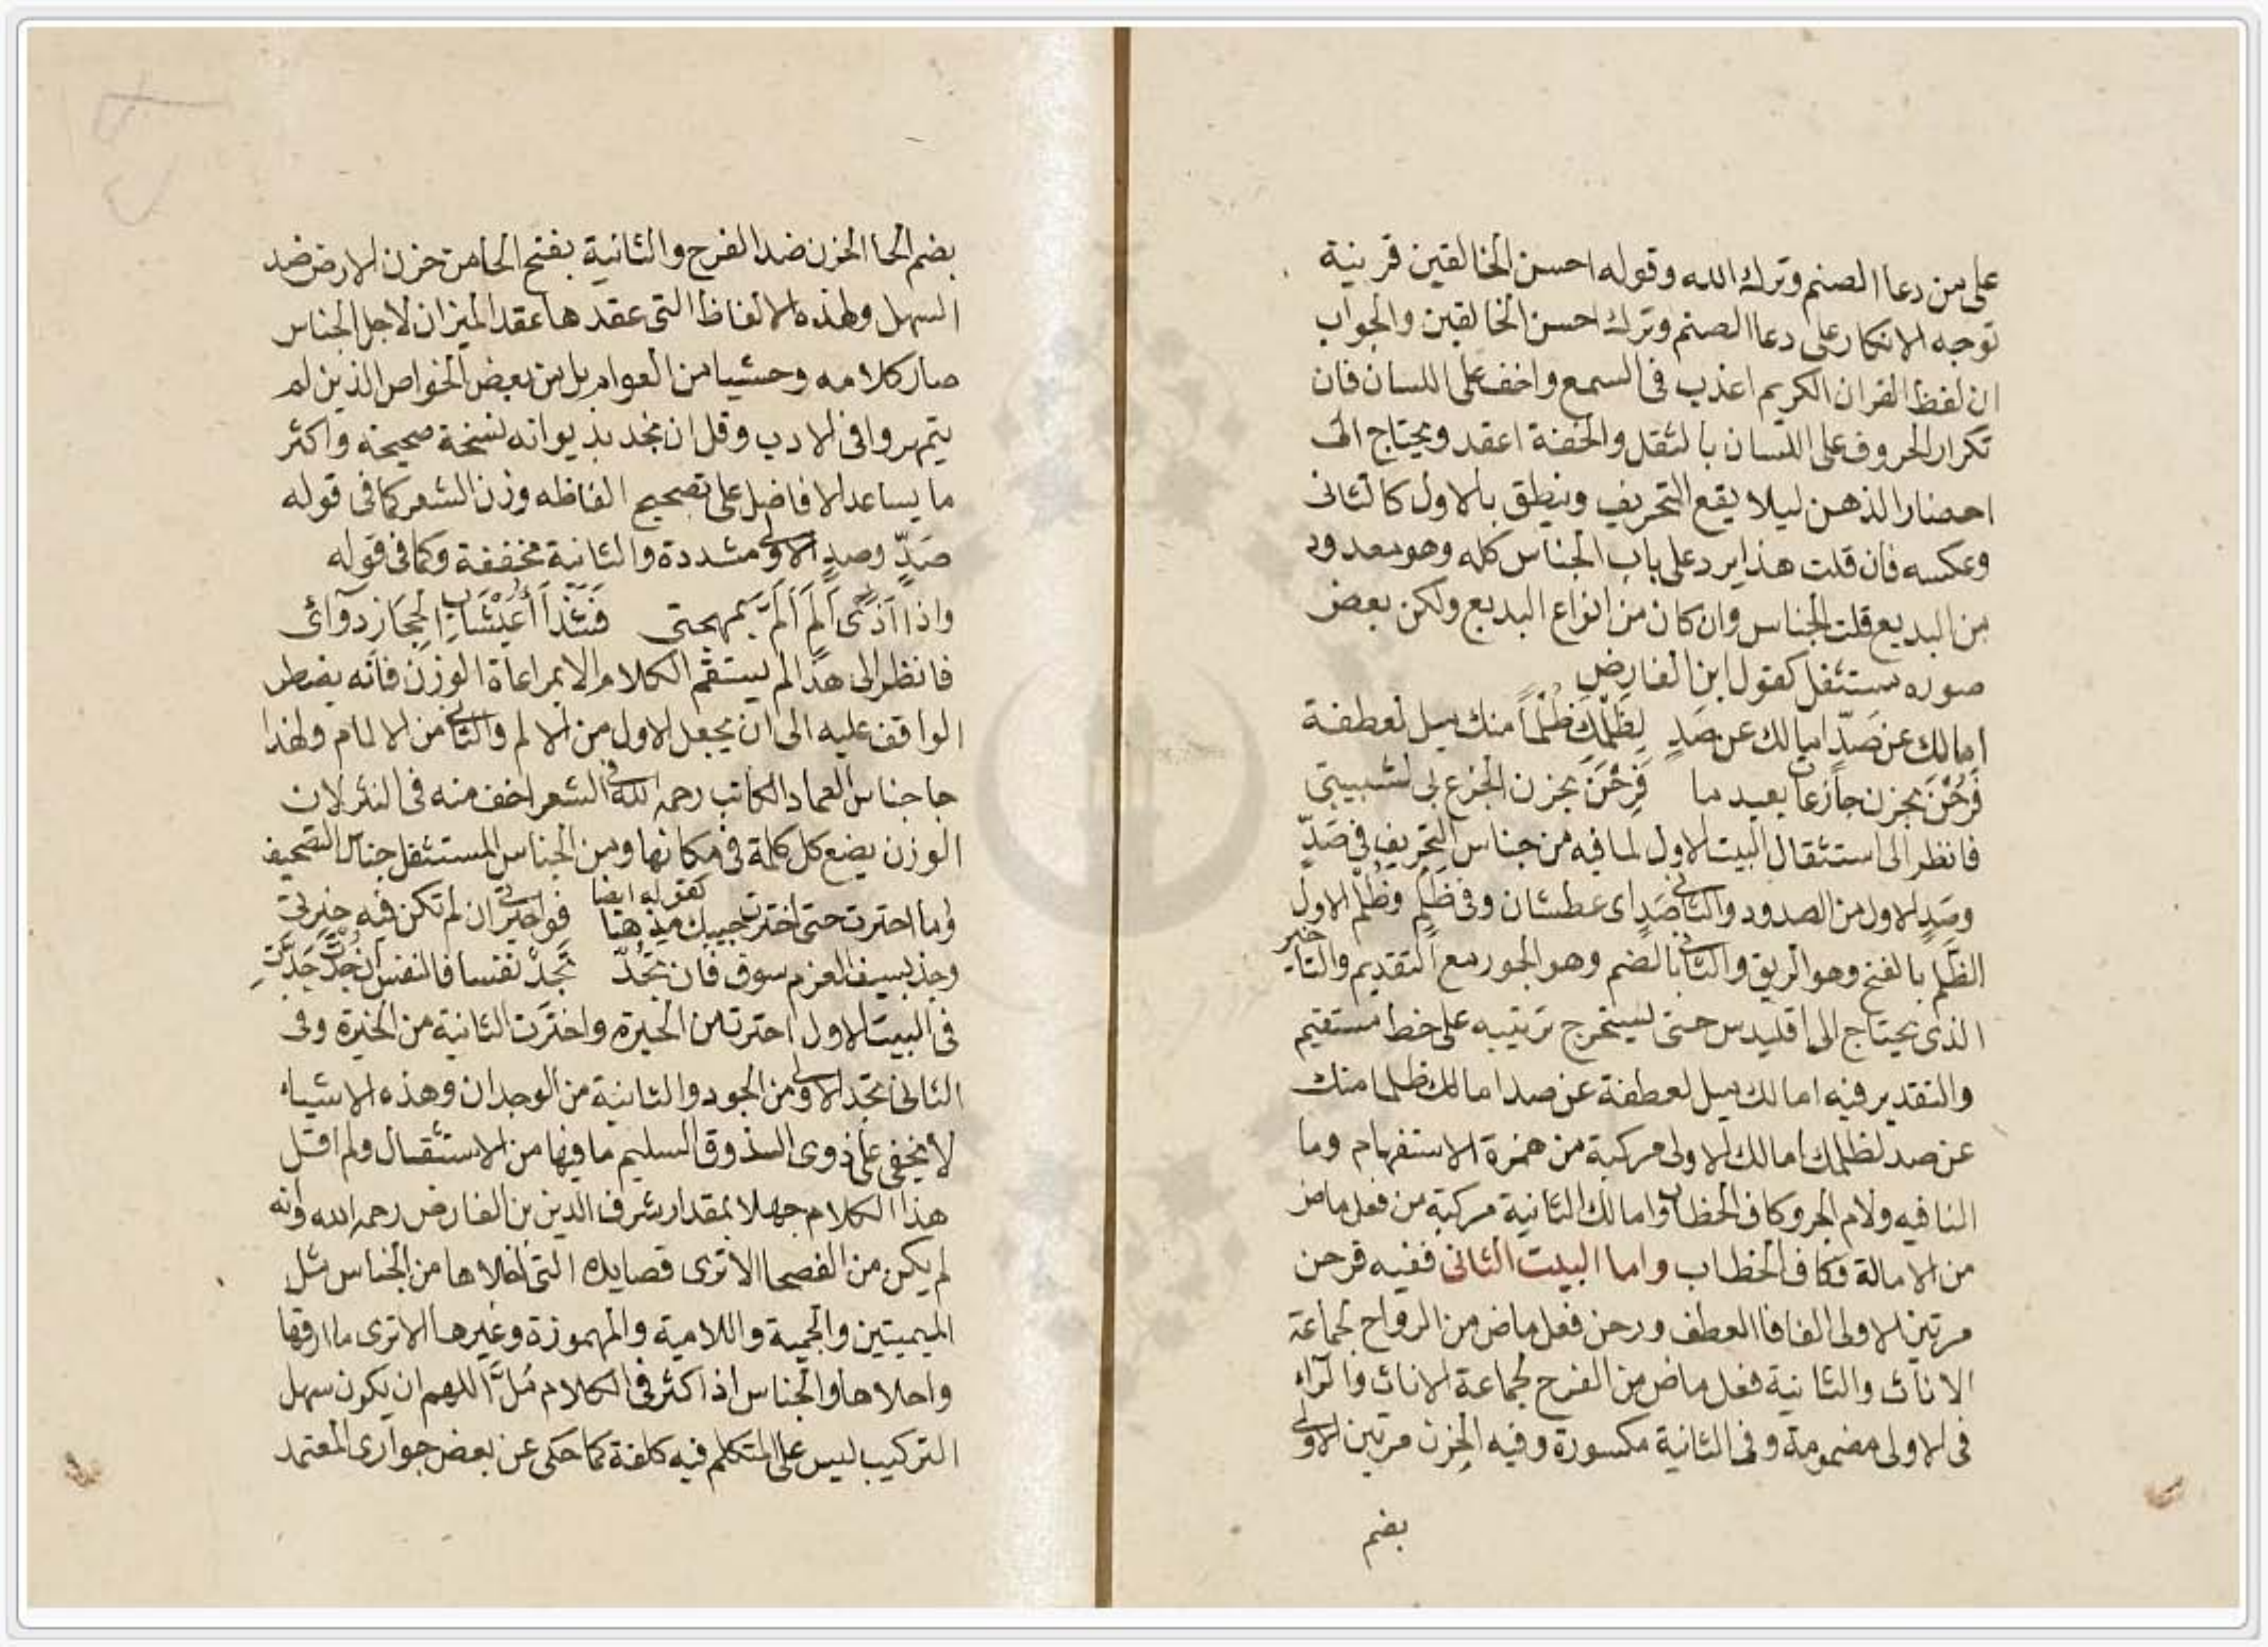 على من دعا الصنم وترك الله وقوله احسن الخالقين قرينة
توجه الانكار على دعا الصنم وترك احسن الخالقين والجواب
ان لفظ القران الكريم اعذب فى السمع واخف على اللسان فان
تكرار الحروف على اللسان بالثقل والخفة اعقد ويحتاج الى
احضار الذهن ليلا يقع التحريف وينطق بالاول كالثانى
وعكسه فان قلت هذا يرد على باب الجناس كله وهو معدود
من البديع قلت الجناس وان كان من انواع البديع ولكن بعض
صوره يستثقل كقول ابن الفارض
امالك عن صَدّ امالك عن صَدٍ لِظَلْمِكَ ظُلْماً منك ميل لعطفة
فَرُحْنَ بحزن جازعات بعيد ما فَرِحْنَ بحزن الجزع بى لشبيبتى
فانظر الى استثقال البيت الاول لما فيه من جناس التحريف فى صَدٍّ
وصَدٍ الاول من الصدود والثانى صَدٍ اى عطشان وفى ظَلم وظُلم الاول
الظَلم بالفتح وهو الريق والثانى بالضم وهو الجور مع التقديم والتاخير
الذى يحتاج الى اقليدس حتى يستخرج ترتيبه على خط مستقيم
والتقدير فيه امالك ميل لعطفة عن صد امالك ظلما منك
عن صد لظلمك امالك الاولى مركبة من همزة الاستفهام وما
النافيه ولام الجر وكاف الخطاب وامالك الثانية مركبة من فعل ماض
من الامالة وكاف الخطاب واما البيت الثانى ففيه فرحن
مرتين الاولى الفا فا العطف ورحن فعل ماض من الرواح لجماعة
الاناث والثانية فعل ماض من الفرح لجماعة الاناث والراء
فى الاولى مضمومة وفى الثانية مكسورة وفيه الحزن مرتين الاولى
بضم
بضم الحا الحزن ضد الفرح والثانية بفتح الحا من حزن الارض ضد
السهل ولهذه الالفاظ التى عقدها عقد الميزان لاجل الجناس
صار كلامه وحشيا من العوام بل من بعض الخواص الذين لم
يتمهروا فى الادب وقل ان تجد بديوانه نسخة صحيحة واكثر
ما يساعد الافاضل على تصحيح الفاظه وزن الشعر كما فى قوله
صَدٍّ وصدٍ الاولى مشددة والثانية مخففة وكما فى قوله
واذا اَذَى اَلَمٍ اَلَمَّ بمهجتى فَشَذَا اُعَيْشَابِ الحِجَازِ دوآئى
فانظر الى هذا لم يستقم الكلام الا بمراعاة الوزن فانه يضطر
الواقف عليه الى ان يجعل الاول من الالم والثانى من الالمام ولهذا
جا جناس العماد الكاتب رحمه الله فى الشعر اخف منه فى النثر لان
الوزن يضع كل كلمة فى مكانها ومن الجناس المستثقل جناس التصحيف
كقوله ايضا
وما احترت حتى اخترت حبيك مذهبا فواحيرتى ان لم تكن فيه خيرتى
وجذ بسيف العزم سوف فان تَجُدْ تَجِدْ نفسا فالنفس ان جُدْتَ جَدَّتِ
فى البيت الاول احترت من الحيرة واخترت الثانية من الخيرة وفى
الثانى تجد الاولى من الجود والثانية من الوجدان وهذه الاشياء
لا تخفى على ذوى الذوق السليم ما فيها من الاستثقال ولم اقل
هذا الكلام جهلا بمقدار شرف الدين بن الفارض رحمه الله وانه
لم يكن من الفصحا الا ترى قصايده التى اخلاها من الجناس مثل
الميميتين والجمية واللامية والمهموزة وغيرها الا ترى ما ارقها
واحلاها والجناس اذا كثر فى الكلام مُلَّ اللهم ان يكون سهل
التركيب ليس على المتكلم فيه كلفة كما حكى عن بعض جوارى المعتمد